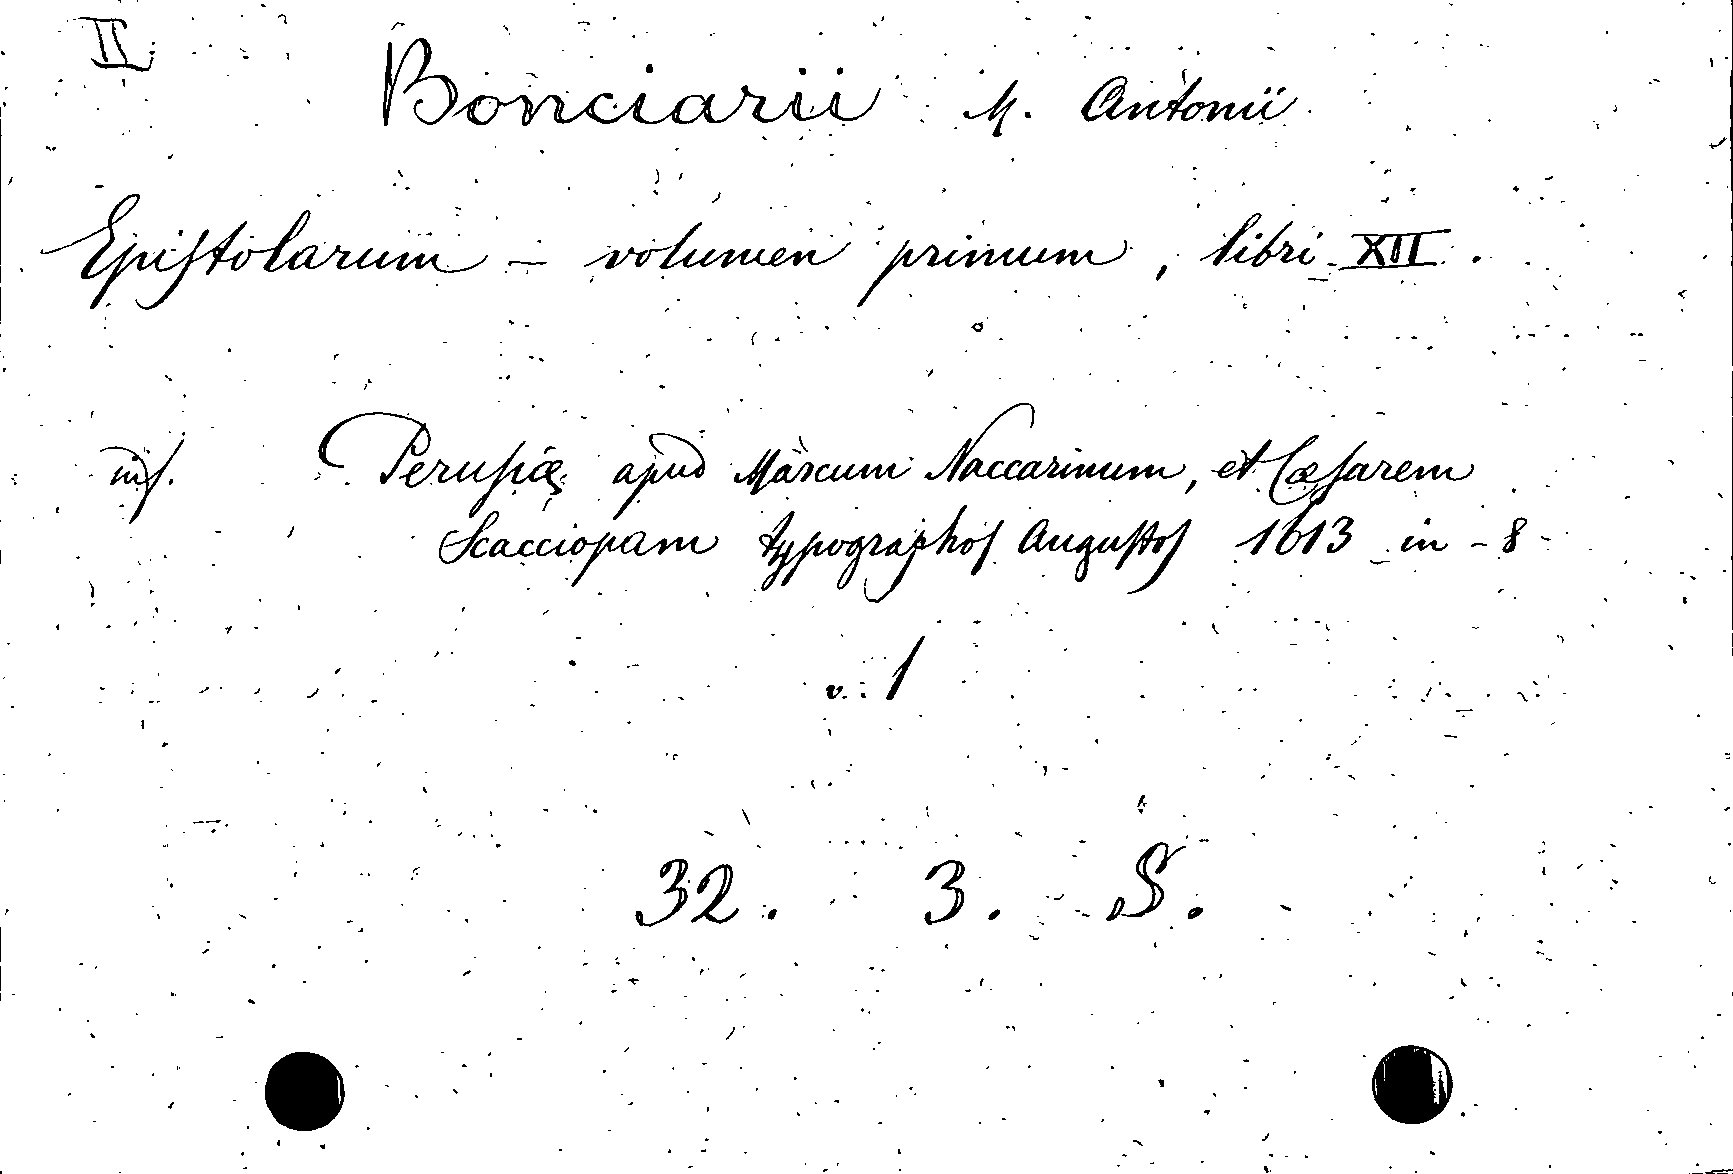 II
Bonciarii M. Antonii
Epistolarum - volumen primum, libri XII.
Perusiæ apud Marcum Naccarinum, et Cæsarem
Scacciopam typographos Augustos 1613 in-8
v. 1
32. 3. S.